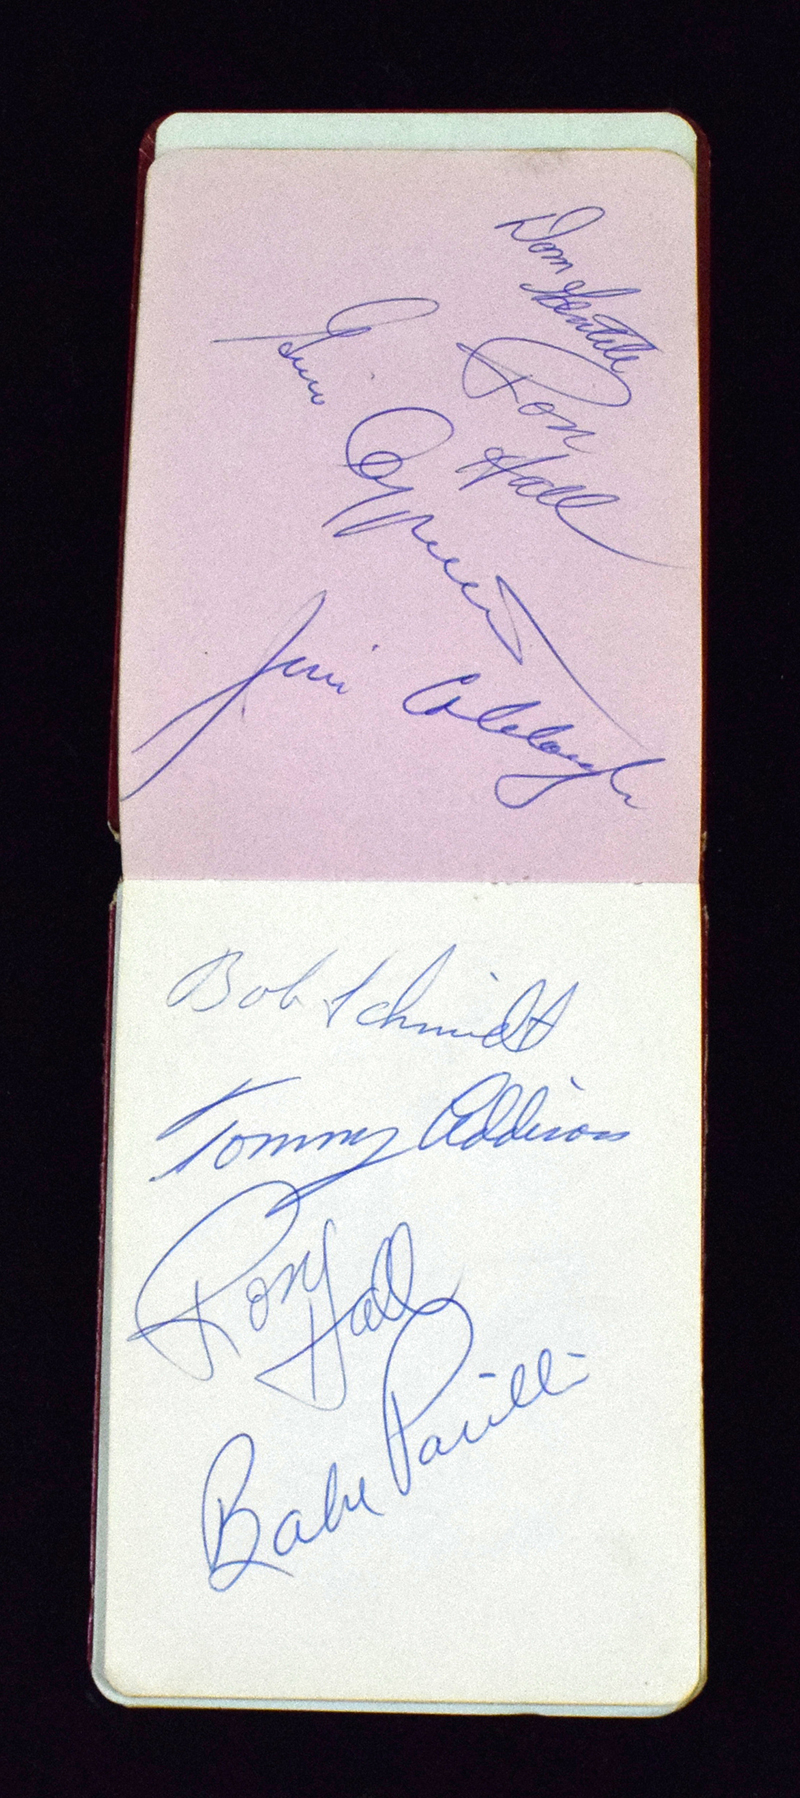 Ron
Hall
Gino
Jim Colclough
Bob Schmidt
Tommy Addison
Ron Hall
Babe Parilli